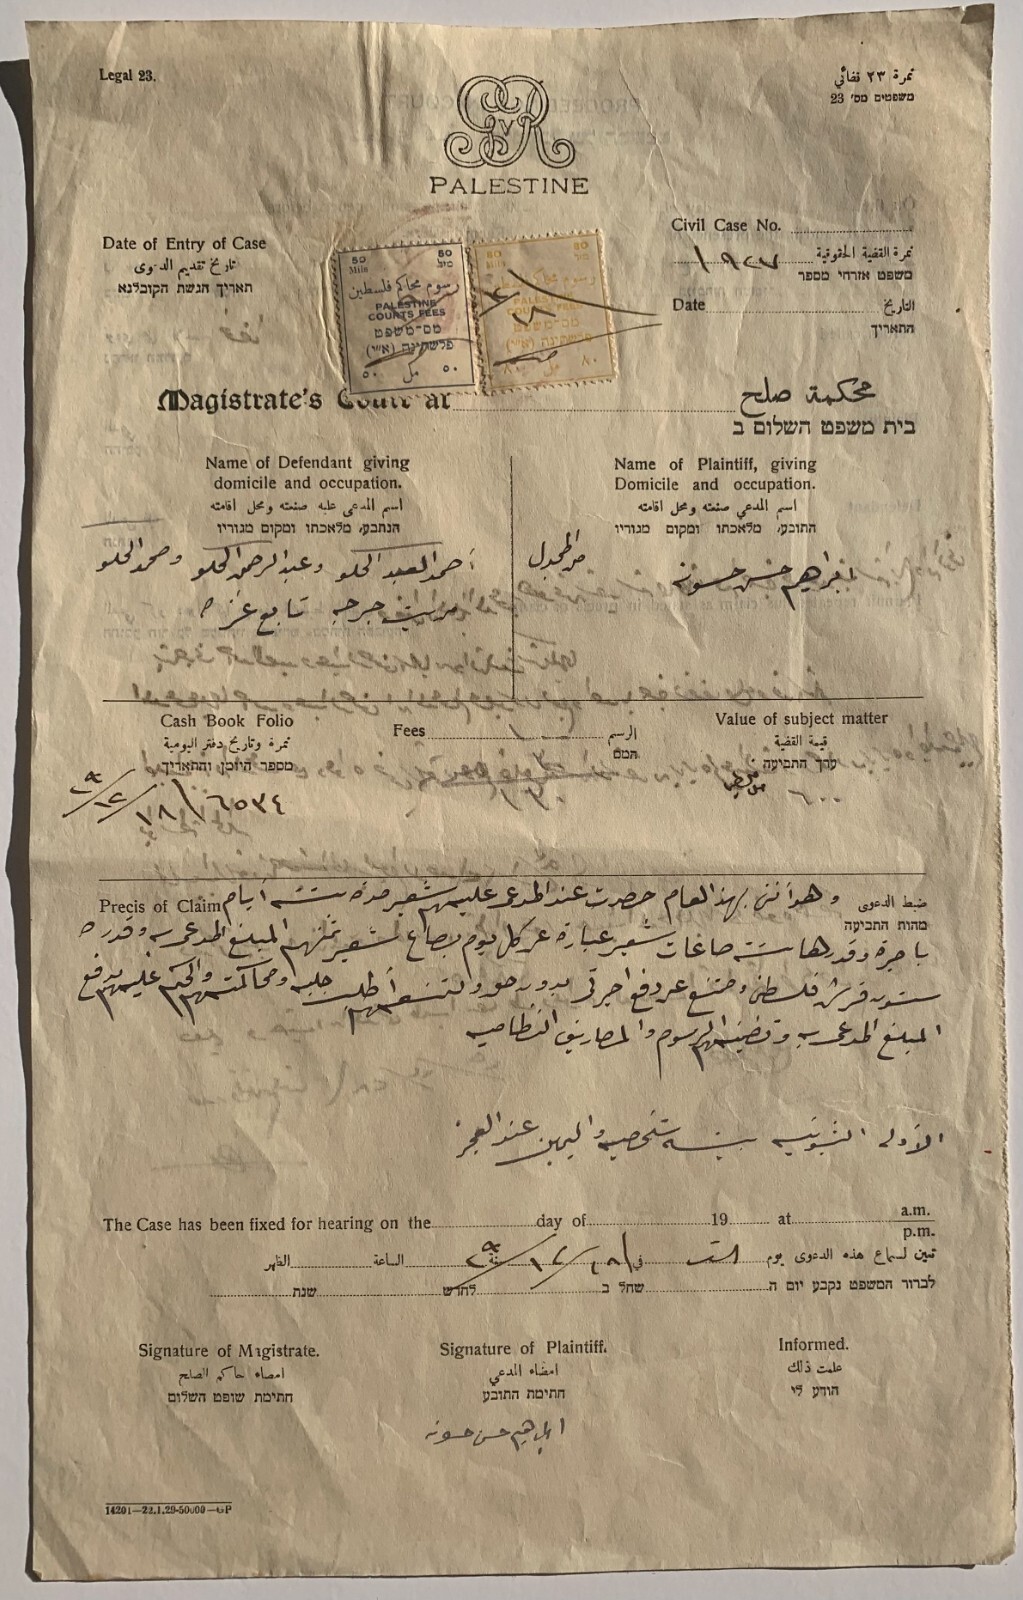 Legal 23.
نمرة ٢٣ قضائي
משפטים מס' 23
GVR
PALESTINE
Date of Entry of Case
تاريخ تقديم الدعوى
תאריך הגשת הקובלנא
Civil Case No.
نمرة القضية الحقوقية
משפט אזרחי מספר
Date
التاريخ
התאריך
50 Mils 50 מיל
رسوم محاكم فلسطين
PALESTINE
COURTS FEES
מס-משפט
פלשתינה (א"י)
٥٠ مل ٥٠
80 80
PALESTINE
COURTS FEES
מס-משפט
פלשתינה (א"י)
٨٠ ٨٠
Magistrate's Court at
محكمة صلح
בית משפט השלום ב
Name of Defendant giving
domicile and occupation.
اسم المدعى عليه صنعته ومحل اقامته
הנתבע, מלאכתו ומקום מגוריו
أحمد العبد الحلو وعبد الرحمن الحلو ومحمد الحلو
من بيت جرجه تابع غزه
Name of Plaintiff, giving
Domicile and occupation.
اسم المدعي صنعته ومحل اقامته
התובע, מלאכתו ומקום מגוריו
ابراهيم حسن حسونه من المجدل
Cash Book Folio
نمرة وتاريخ دفتر اليومية
מספר היומן והתאריך
٦٥٣٤ ١٨/١٢/٢٩
Fees
الرسم
המס
Value of subject matter
قيمة القضية
ערך התביעה
٦٠٠
Precis of Claim
ضبط الدعوى
מהות התביעה
و هو أنني بهذا العام حصدت عند المدعى عليهم شعير مدة ستة أيام
باجرة وقدرها ستة صاعات شعير عبارة عن كل يوم بصاع شعير ثمنهم المبلغ المدعى به وقدره
ستون قرش فلسطيني وممتنع عن دفع اجرتي بدون حق ولتمنعهم أطلب جلبهم ومحاكمتهم والحكم عليهم بدفع
المبلغ المدعى به وتضمينهم الرسوم والمصاريف النظاميه
الأدله الثبوتيه بينه شخصيه واليمين عند العجز
The Case has been fixed for hearing on the day of 19 at a.m.
p.m.
تعين لسماع هذه الدعوى يوم السبت في ٢٨/١٢ سنة ٢٩ الساعة الظهر
לברור המשפט נקבע יום ה שחל ב לחדש שנת
Signature of Magistrate.
امضاء حاكم الصلح
חתימת שופט השלום
Signature of Plaintiff.
امضاء المدعي
חתימת התובע
ابراهيم حسن حسونه
Informed.
علمت ذلك
הודע לי
14201—22.1.29-50000—GP